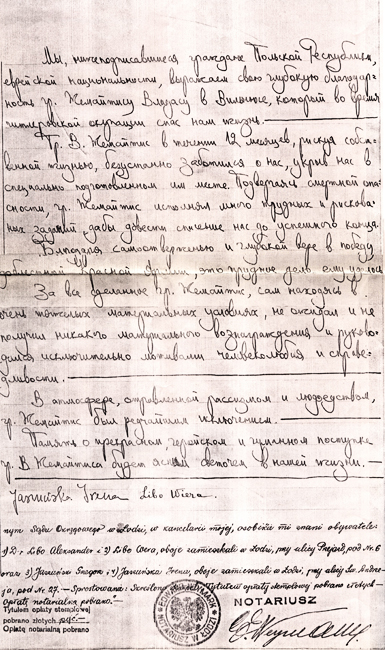 Мы, нижеподписавшиеся граждане Польской Республики,
еврейской национальности, выражаем свою глубокую благодар-
ность гр. Жемайтису Владасу в Вильнюсе, который во время
гитлеровской окупации спас нам жизнь.
Гр. В. Жемайтис в течении 12 месяцев, рискуя собст-
венной жизнью, безустанно заботился о нас, укрыв нас в
специально подготовленном им месте. Подвергаясь смертной опа-
сности, гр. Жемайтис исполнял много трудных и рискова-
ных заданий, дабы довести спасение нас до успешного конца.
Благодаря самоотверженью и глубокой вере в победу
доблестной Красной Армии, это трудное дело ему удалось
За все сделанное гр. Жемайтис, сам находясь в
очень тяжелых материальных условиях, не ожидал и не
получил никакого материального вознаграждения и руково-
дился исключительно мотивами человеколюбия и справе-
дливости.
В атмосфере, отравленной рассизмом и людоедством,
гр. Жемайтис был редчайшим исключением.
Память о прекрасном, геройском и гуманном поступке
гр. В. Жемайтиса будет ясным светочем в нашей жизни.
Janwińska Irena Libo Wiera
Sądu Okręgowego w Łodzi, w kancelarii mojej, osobiście mi znani obywatele:
Libo Aleksander i 2) Libo Wera, oboje zamieszkali w Łodzi, przy ulicy pod Nr. 6
oraz 3) i 4) Irena, oboje zamieszkali w Łodzi, przy ulicy Św. Andrze-
ja, pod Nr. 27. – Sprostowano: Tytułem opłaty stemplowej pobrano złotych
Opłatę notarialną pobrano.
Tytułem opłaty stemplowej
pobrano złotych
Opłatę notarialną pobrano
NOTARIUSZ
NOTARIUSZ W ŁODZI